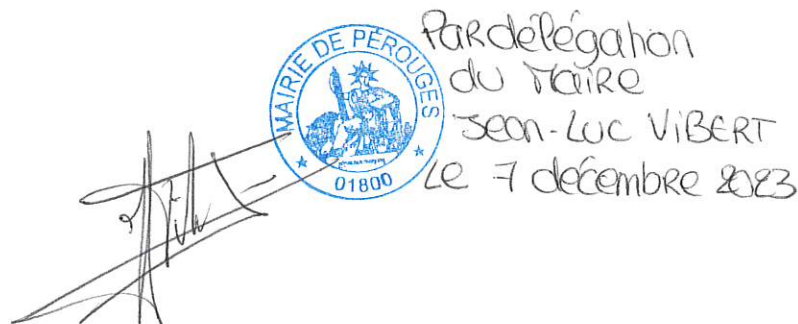 MAIRIE DE PÉROUGES
01800
Par délégation
du Maire
Jean-Luc ViBERT
Le 7 décembre 2023